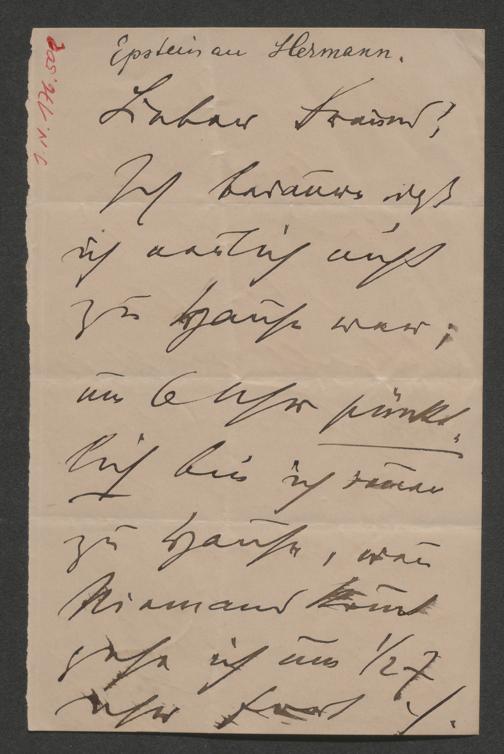 Epstein an Hermann.
I.N. 176.502
Lieber Freund!
Ich bedaure daß
ich neulich nicht
zu Hause war;
um 6 Uhr pünkt-
lich bin ich immer
zu Hause, wen
Niemand komt
gehe ich um 1/2 7
Uhr fort